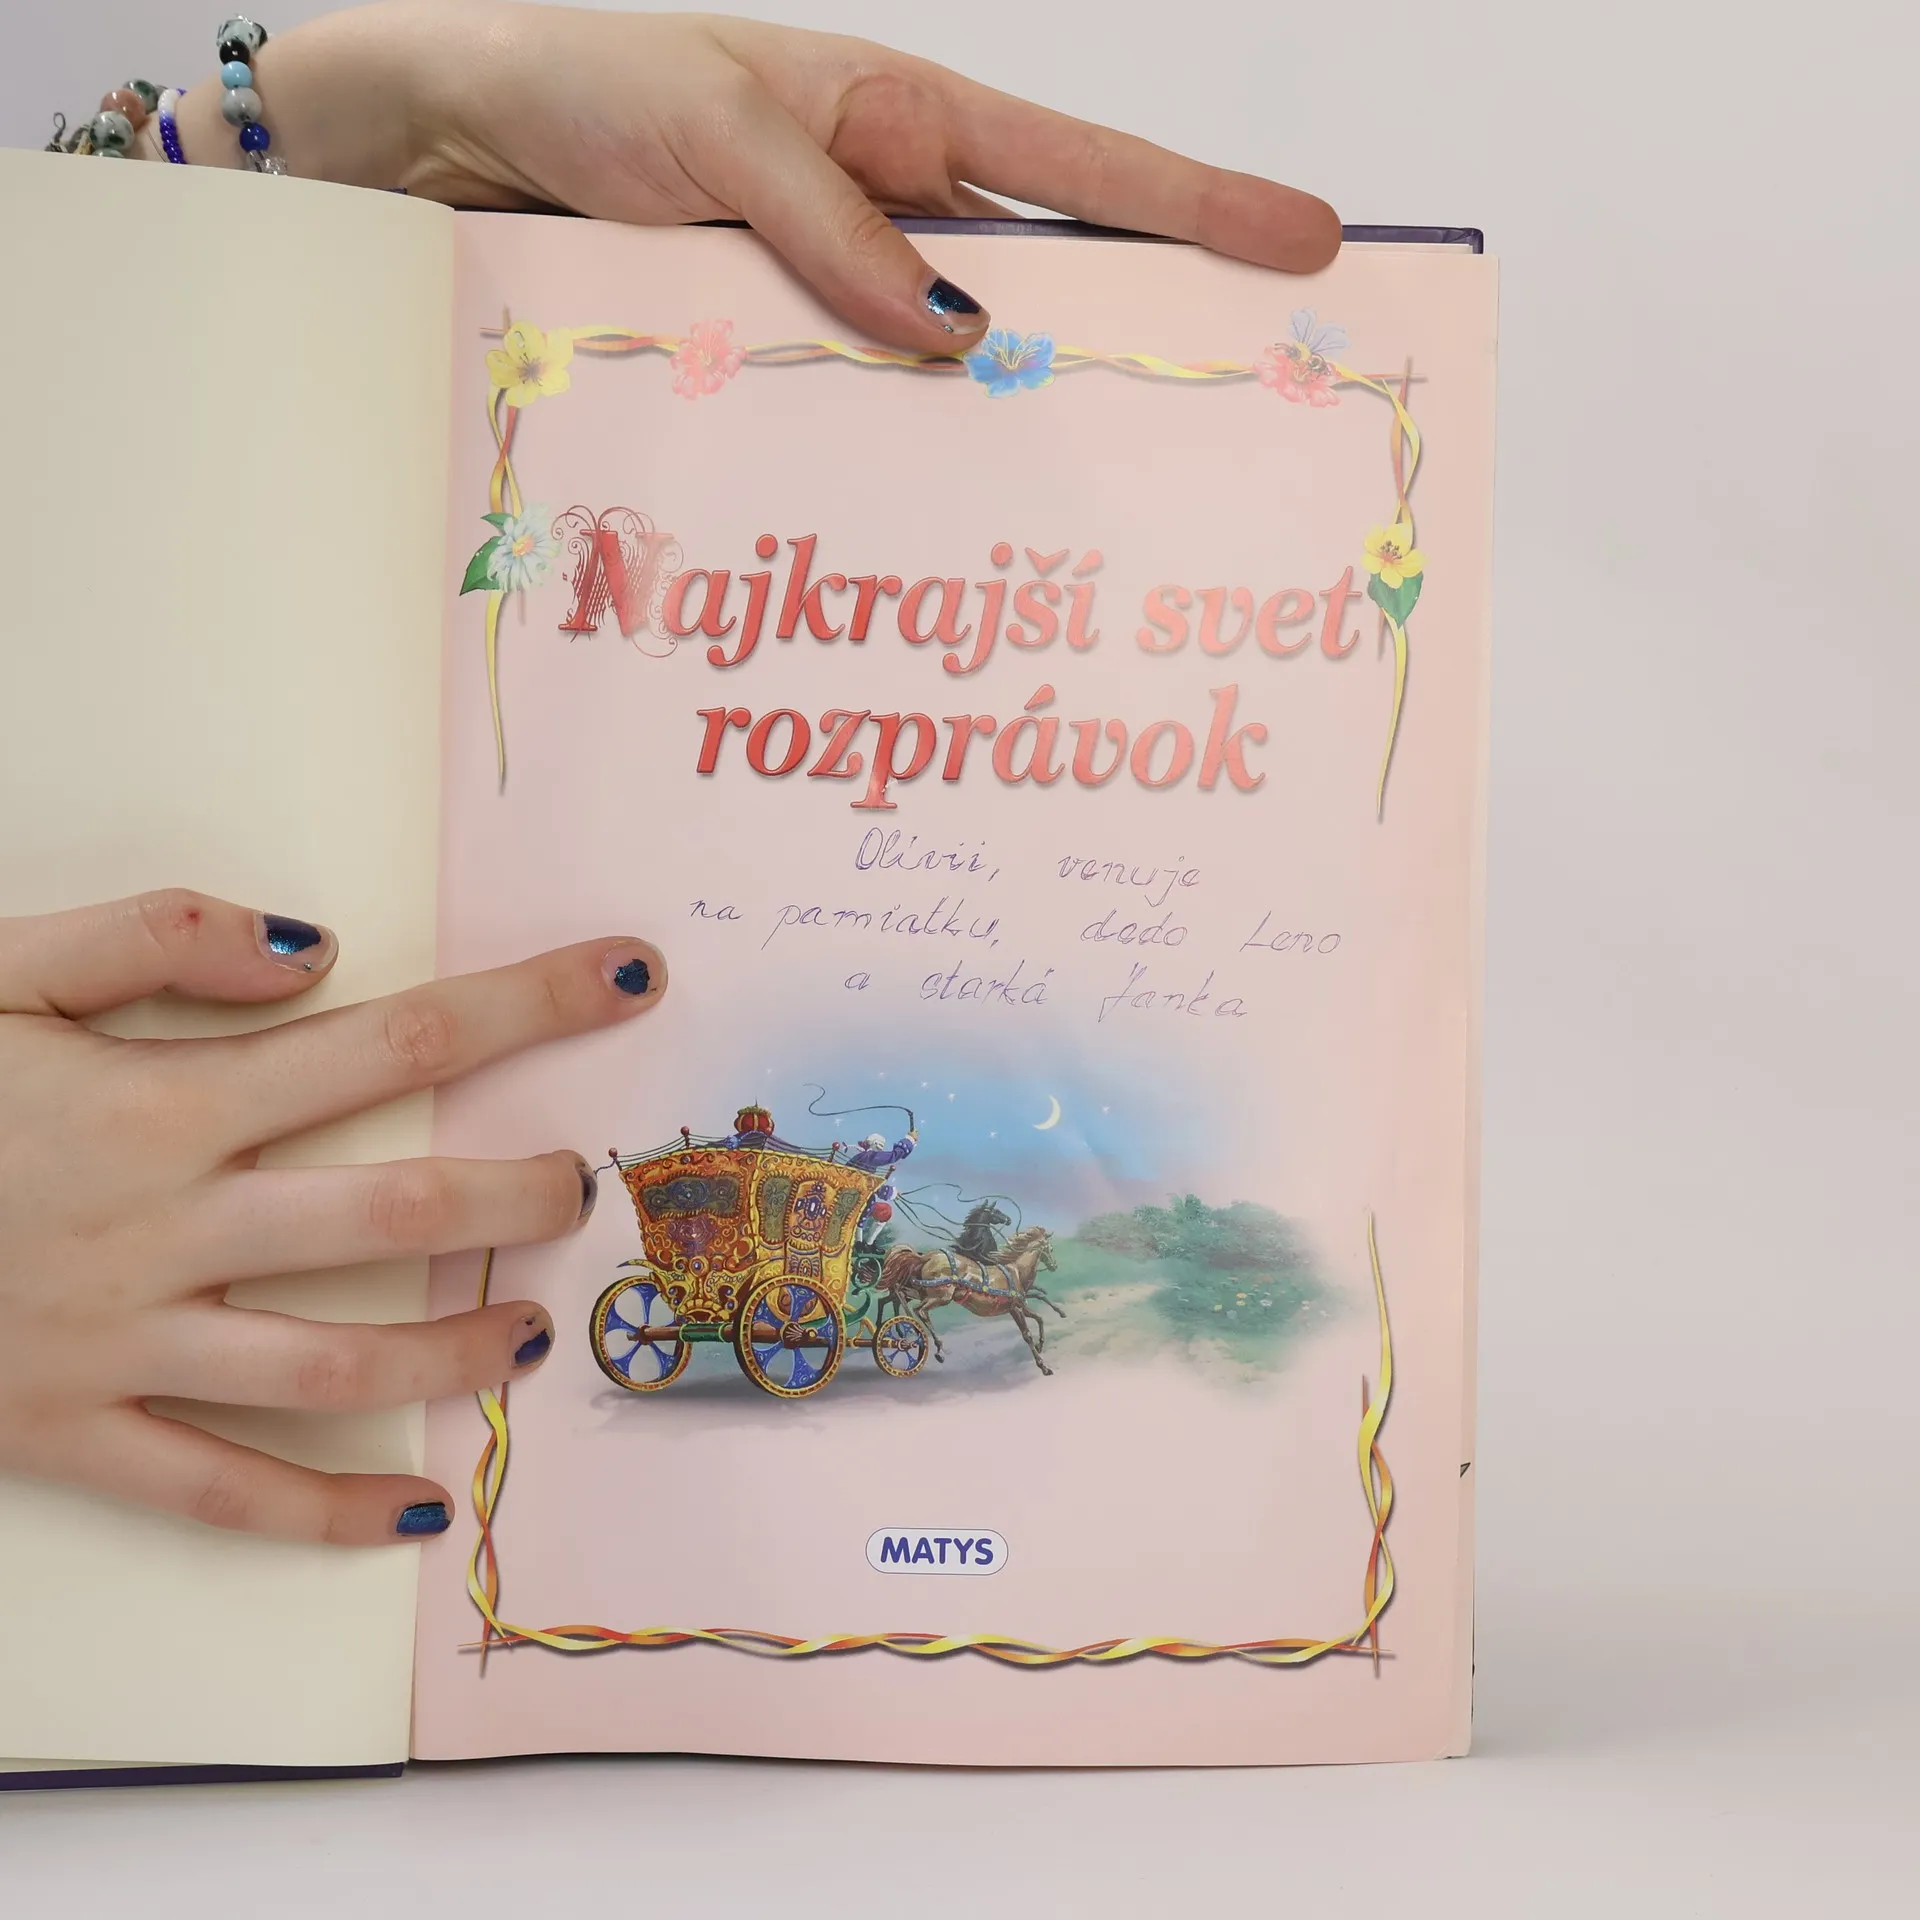 Najkrajší svet
rozprávok
Olivii, venuje
na pamiatku, dedo Leno
a starká Janka
MATYS